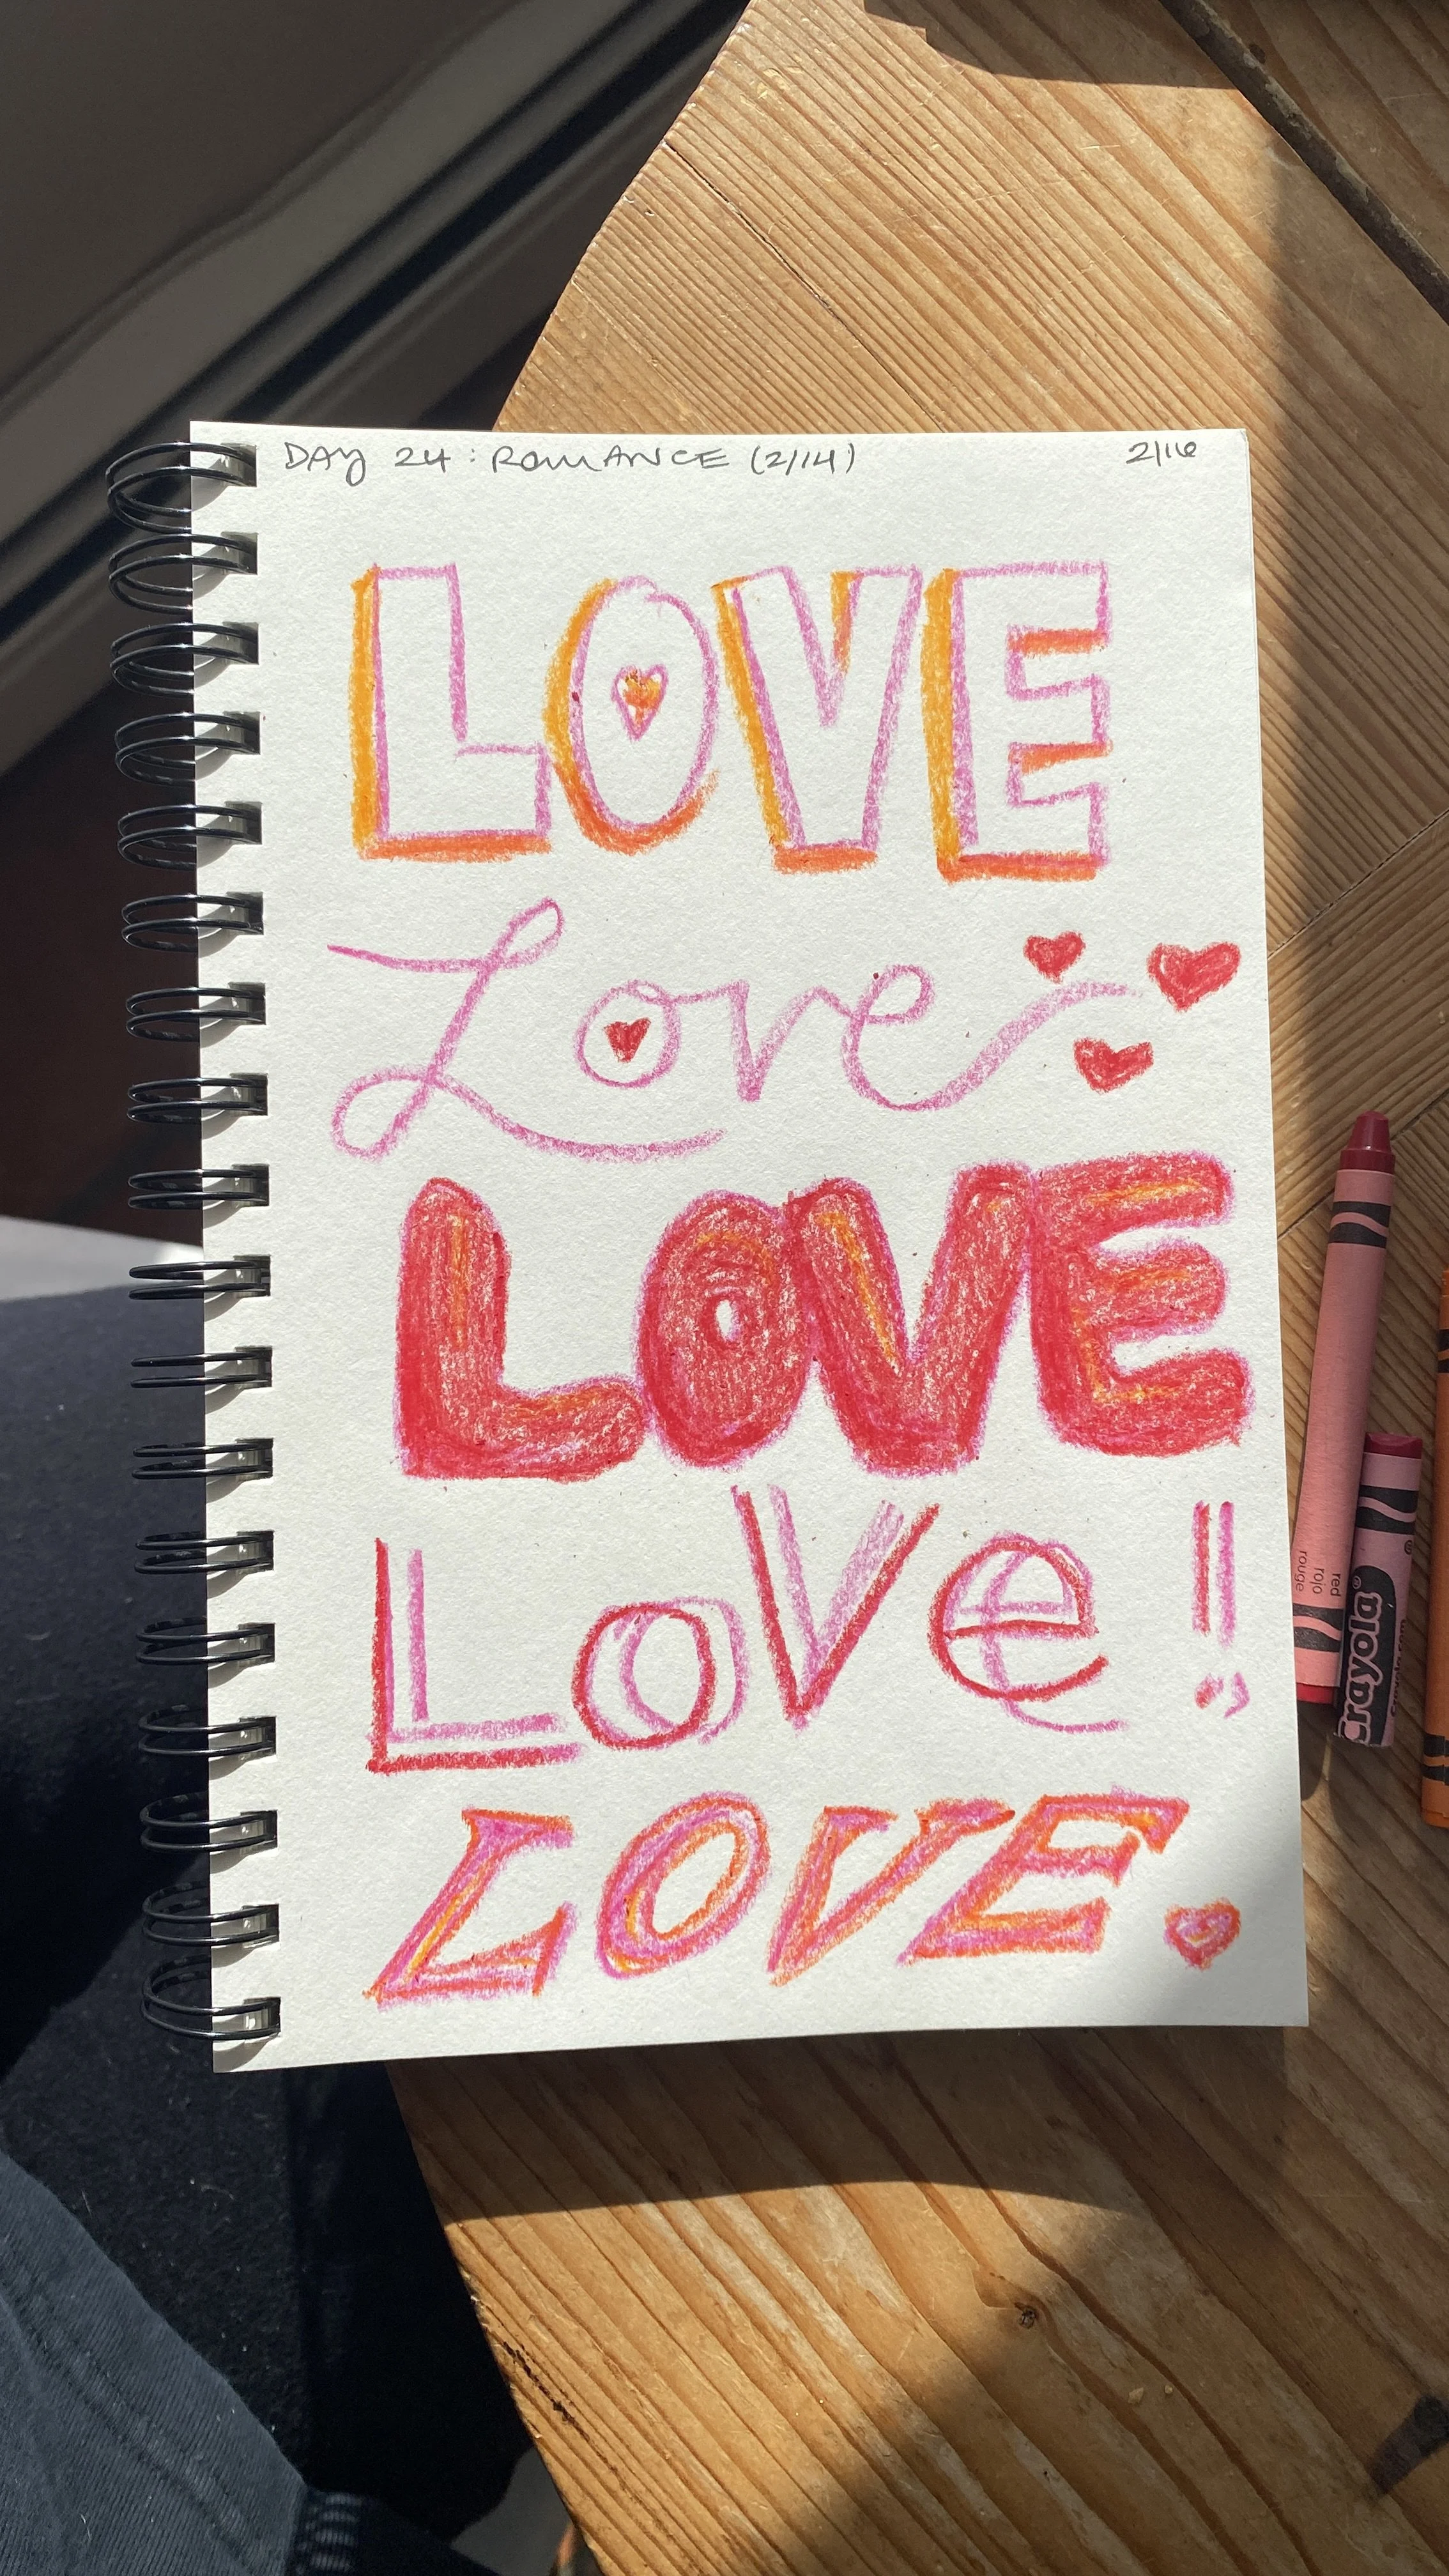 DAY 24: ROMANCE (2/14) 2/16
LOVE
Love
LOVE
LoVe!
LOVE.
red
rojo
rouge
Crayola